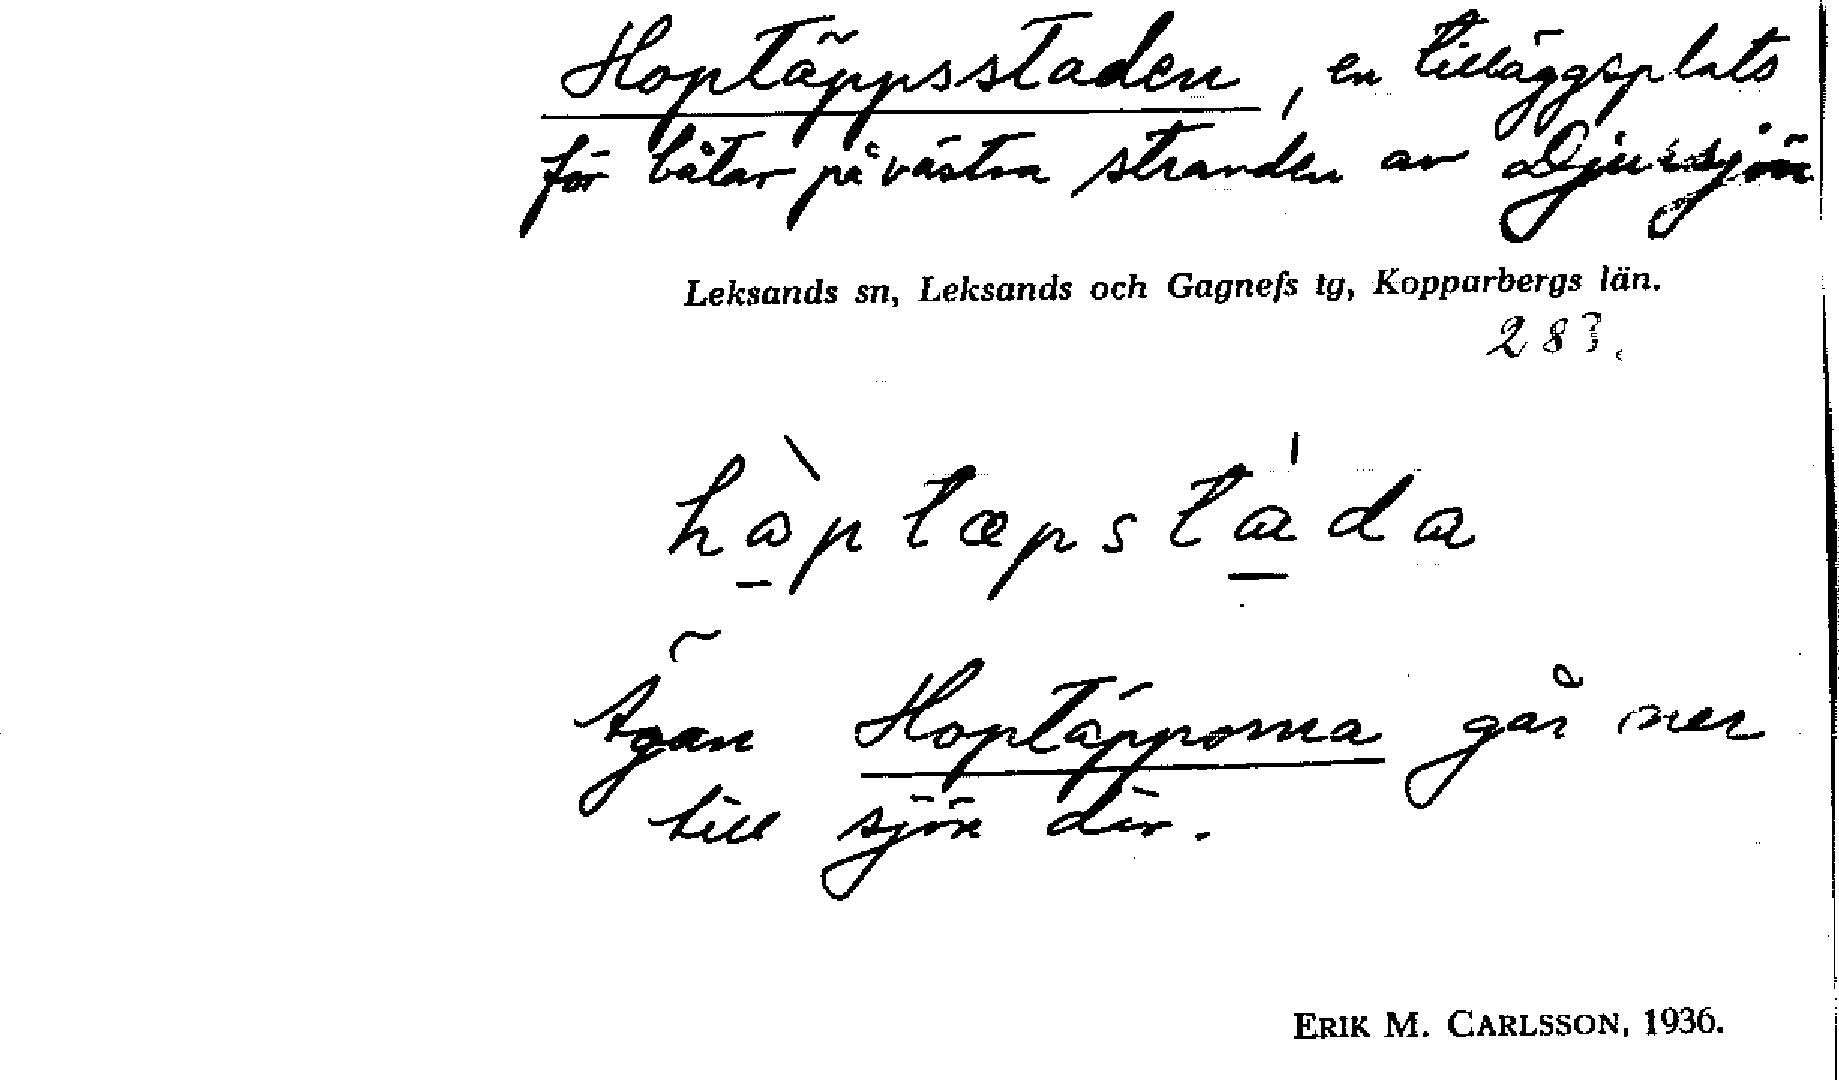 Hoptäppsstaden, en tilläggsplats
för båtar på västra stranden av Djursjön
Leksands sn, Leksands och Gagnefs tg, Kopparbergs län.
283.
hòptæpstáda
Ägan Hoptäpporna går ner
till sjön där.
ERIK M. CARLSSON, 1936.